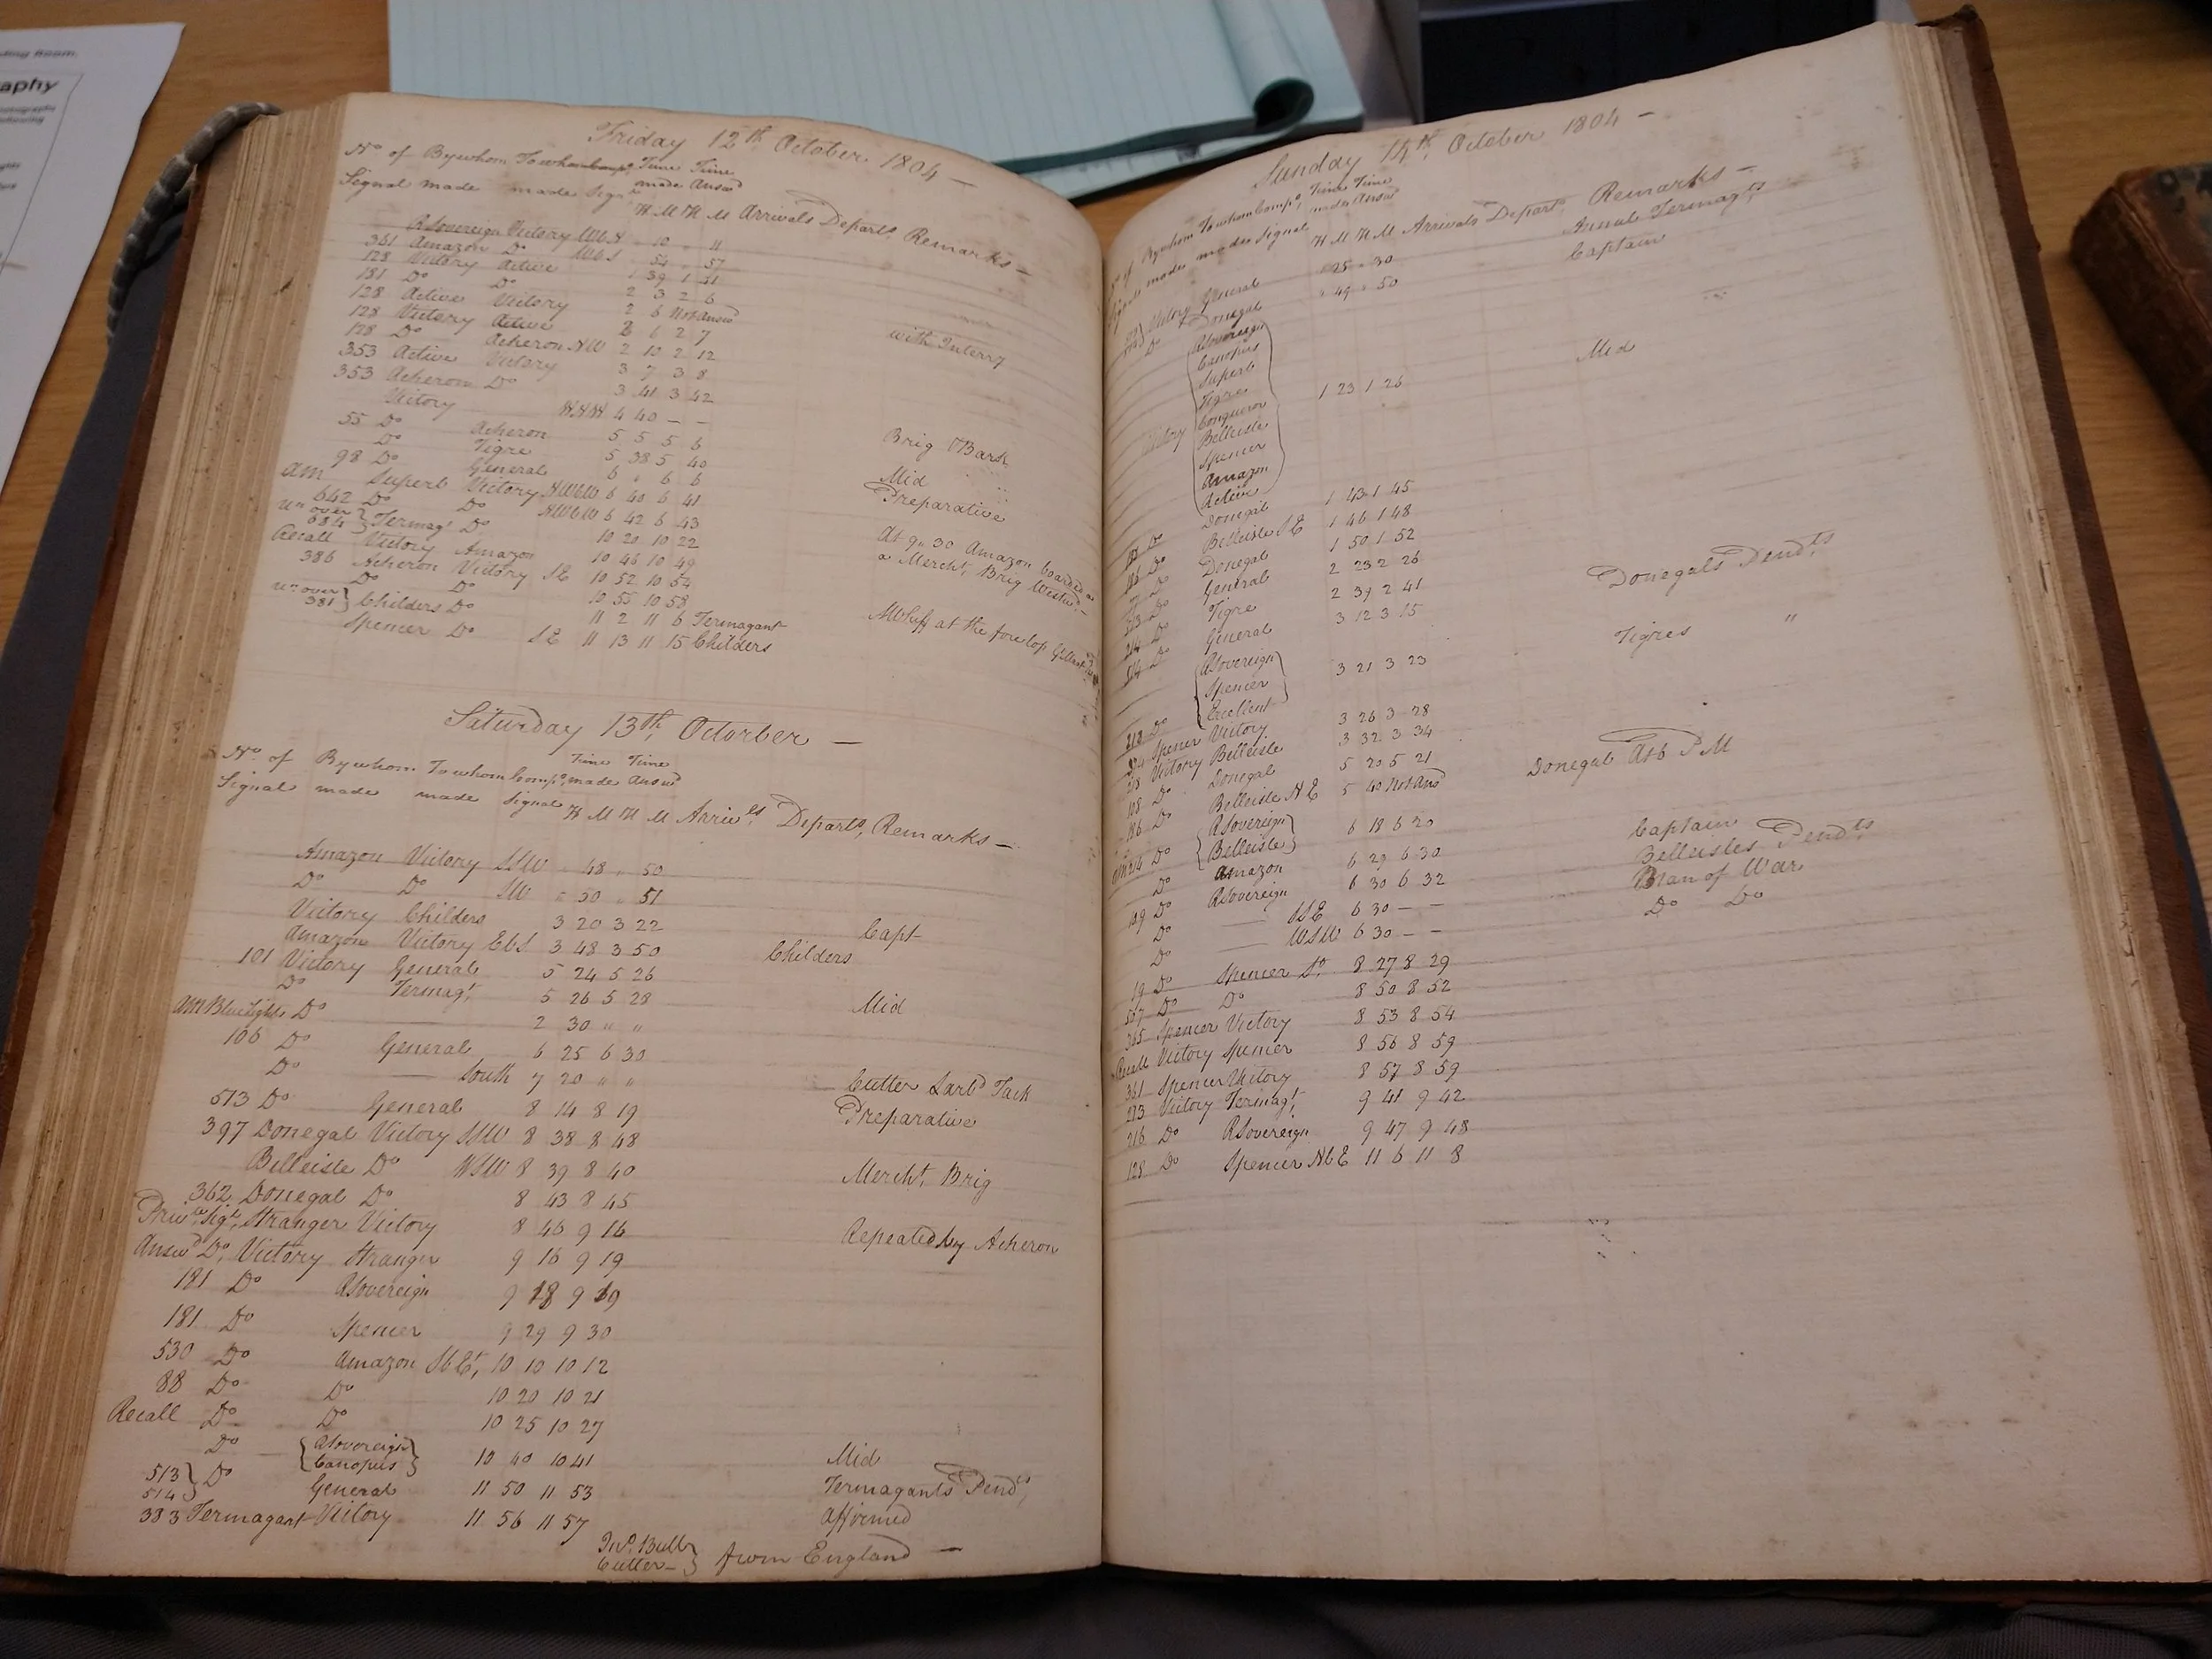 ding Room.
aphy
Friday 12th October 1804 —
No of By whom To whom Comps Time Time
Signal made made Sigl made Answd
H M H M Arrivals Departs Remarks —
RSovereign Victory WbN 10 " 11
361 Amazon Do WbS 54 " 57
128 Victory Active 1 39 1 41
181 Do Do 2 3 2 6
128 Active Victory 2 6 Not Answd
128 Victory Active 2 6 2 7 with Interry
128 Do Acheron NW 2 10 2 12
353 Active Victory 3 7 3 8
353 Acheron Do 3 41 3 42
Victory 4 40 — —
55 Do Acheron 5 5 5 6 Brig & Bark
Do Tigre 5 38 5 40 Mid
98 Do General 6 " 6 6 Preparative
am Superb Victory NWbW 6 40 6 41
642 Do Do NWbW 6 42 6 43
un over 684 } Termagt Do 10 20 10 22 At 9,,30 Amazon boarded
Recall Victory Amazon 10 46 10 49 a Mercht Brig
386 Acheron Victory SE 10 52 10 54
Do Do 10 55 10 58
un over 381 } Childers Do 11 2 11 6 Termagant at the fore top
Spencer Do SE 11 13 11 15 Childers
Saturday 13th Octorber —
No of By whom To whom Comps Time Time
Signal made made Signal made Answd
H M H M Arrivls Departs Remarks —
Amazon Victory SSW " 48 " 50
Do Do SW " 50 " 51
Victory Childers 3 20 3 22 Capt
Amazon Victory EbS 3 48 3 50 Childers
101 Victory General 5 24 5 26
Do Termagt 5 26 5 28 Mid
AM Blue Lights Do 2 30 " "
106 Do General 6 25 6 30
Do — South 7 20 " " Cutter Larbd Tack
513 Do General 8 14 8 19 Preparative
397 Donegal Victory SSW 8 38 8 48
Belleisle Do WSW 8 39 8 40 Mercht Brig
362 Donegal Do 8 43 8 45
Privte Sigl Stranger Victory 8 46 9 16 Repeated by Acheron
Answd Do Victory Stranger 9 16 9 19
181 Do RSovereign 9 18 9 19
181 Do Spencer 9 29 9 30
530 Do Amazon 10 10 10 12
88 Do Do 10 20 10 21
Recall Do Do 10 25 10 27
Do { RSovereign Canopus } 10 40 10 41 Mid
513 514 } Do General 11 50 11 53 Termagants Pendts
383 Termagant Victory 11 56 11 57 Affirmed
Jno Bull Cutter } from England —
Sunday 14th October 1804 —
No of By whom To whom Comps Time Time
Signal made made Signal made Answd
H M H M Arrivals Departs Remarks —
Victory General " 25 " 30 Annul Termagts
Do Donegal " 49 " 50 Captain
Victory { RSovereign
Canopus
Superb
Tigre
Conqueror 1 23 1 25 Mid
Belleisle
Spencer
Amazon
Active }
Do Donegal 1 43 1 45
Do Belleisle SE 1 46 1 48
Do Donegal 1 50 1 52
Do General 2 23 2 26 Donegals Pendts
214 Do Tigre 2 39 2 41
514 Do General 3 12 3 15 Tigres "
218 Do { RSovereign Spencer Excellent 3 21 3 23
Spencer Victory 3 26 3 28
213 Victory Belleisle 3 32 3 34
108 Do Donegal 5 20 5 21
186 Do Belleisle NE 5 40 Not And Donegal At 6 PM
Do { RSovereign Belleisle } 6 18 6 20 Captain
Do Amazon 6 29 6 30 Belleisles Pendts
109 Do RSovereign 6 30 6 32 Man of War
Do — SSE 6 30 — — Do Do
Do — WSW 6 30 — —
19 Do Spencer So 8 27 8 29
567 Do Do 8 50 8 52
265 Spencer Victory 8 53 8 54
Recall Victory Spencer 8 56 8 59
361 Spencer Victory 8 57 8 59
213 Victory Termagt 9 41 9 42
216 Do RSovereign 9 47 9 48
128 Do Spencer NbE 11 6 11 8